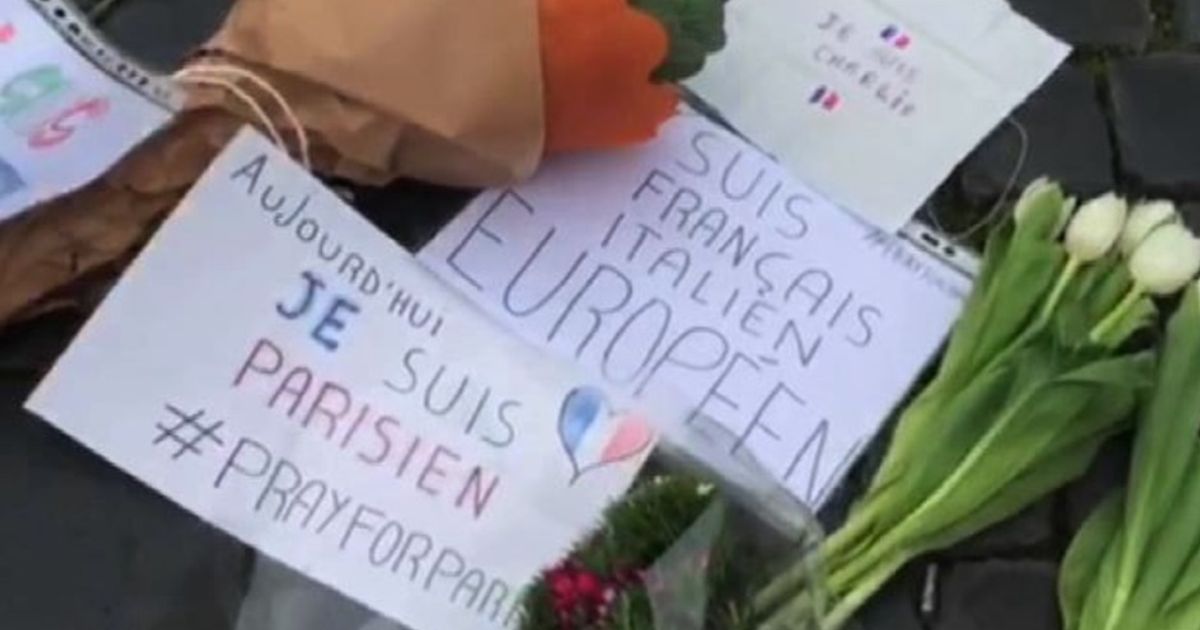 JE SUIS
CHARLIE
SUIS
FRANÇAIS
ITALIEN
EUROPÉEN
AUJOURD'HUI
JE SUIS
PARISIEN
#PRAYFORPARI